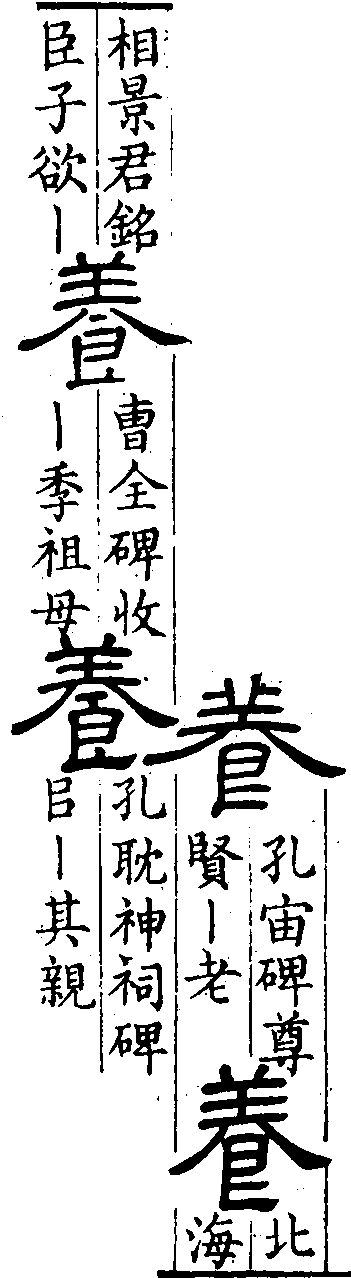 養
孔宙碑尊
賢丨老
養
北
海
相景君銘
臣子欲丨
養
曹全碑收
丨季祖母
養
孔耽神祠碑
㠯丨其親